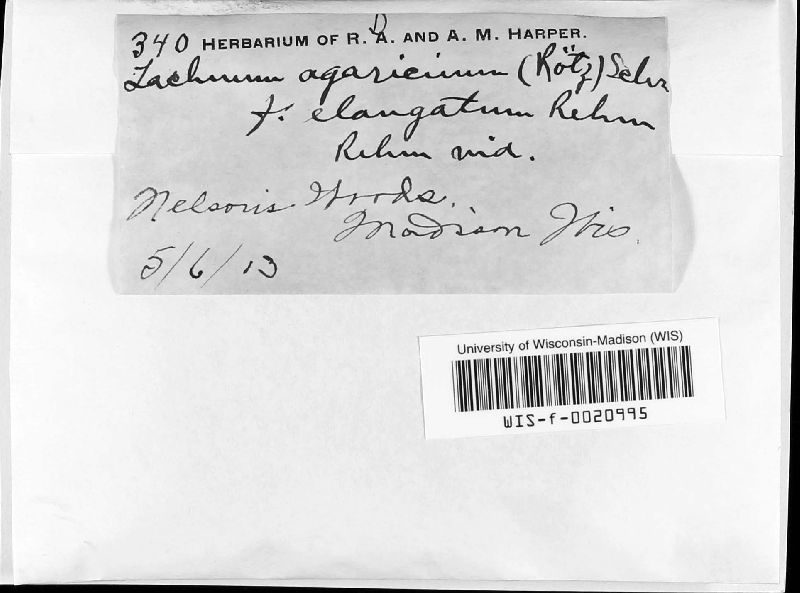 340 HERBARIUM OF R. D. AND A. M. HARPER.
Lachnum agaricinum (Rötz) Schr
f. elongatum Rehm
Rehm vid.
Nelson's Woods.
Madison Wis.
5/6/13
University of Wisconsin-Madison (WIS)
WIS-f-0020995